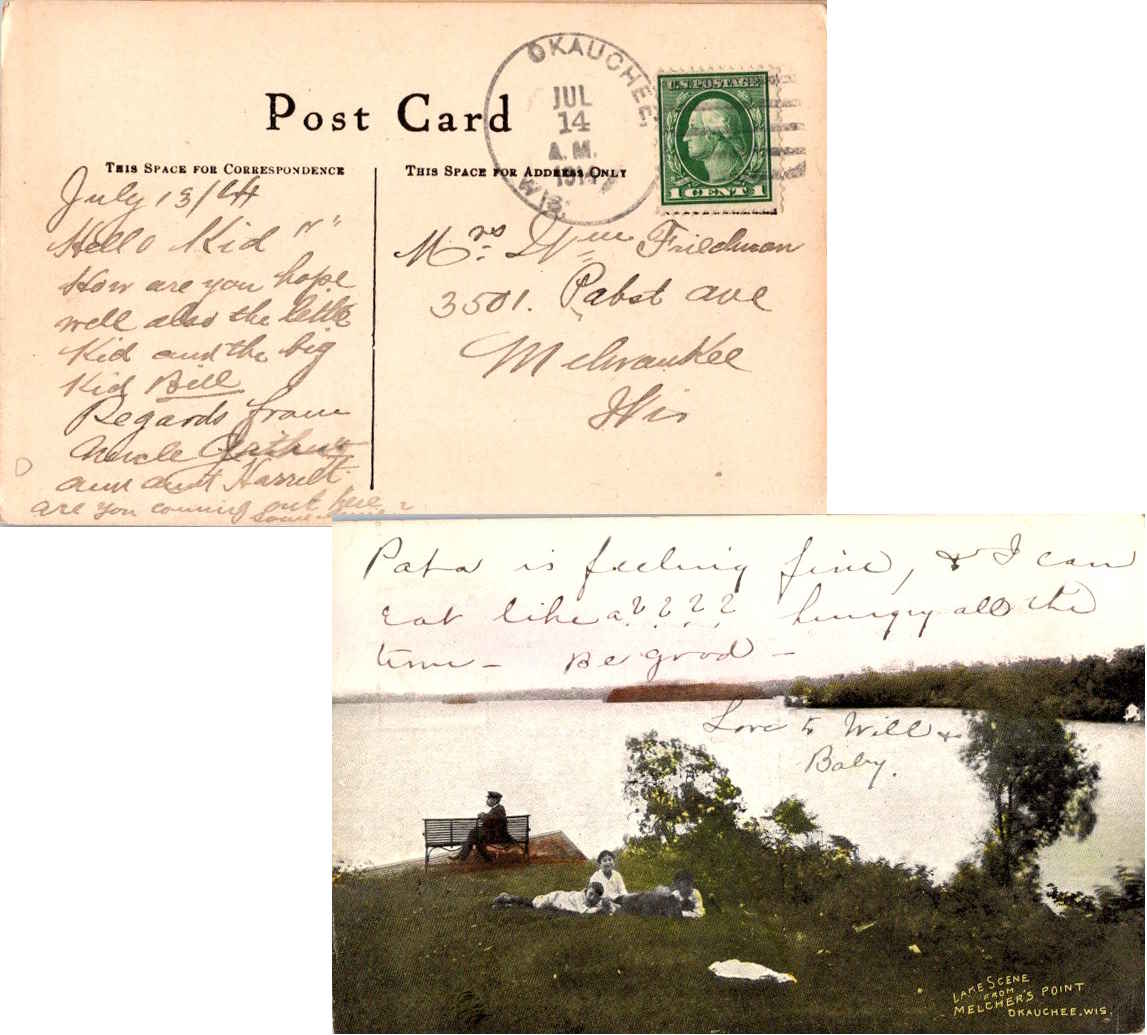 Post Card
OKAUCHEE,
WIS.
JUL
14
A.M.
1914
U.S. POSTAGE
1 CENT 1
THIS SPACE FOR CORRESPONDENCE
THIS SPACE FOR ADDRESS ONLY
July 13/14
Hello Kid " "
How are you hope
well also the little
Kid and the big
Kid Bill
Regards from
Uncle Arthur
aunt Harriet
are you coming out here
some time ?
Mrs. Wm Friedman
3501. Pabst ave
Milwaukee
Wis
Papa is feeling fine, & I can
eat like a ???? hungry all the
time - Be good -
Love to Will &
Baby.
LAKE SCENE
FROM
MELCHER'S POINT
OKAUCHEE, WIS.